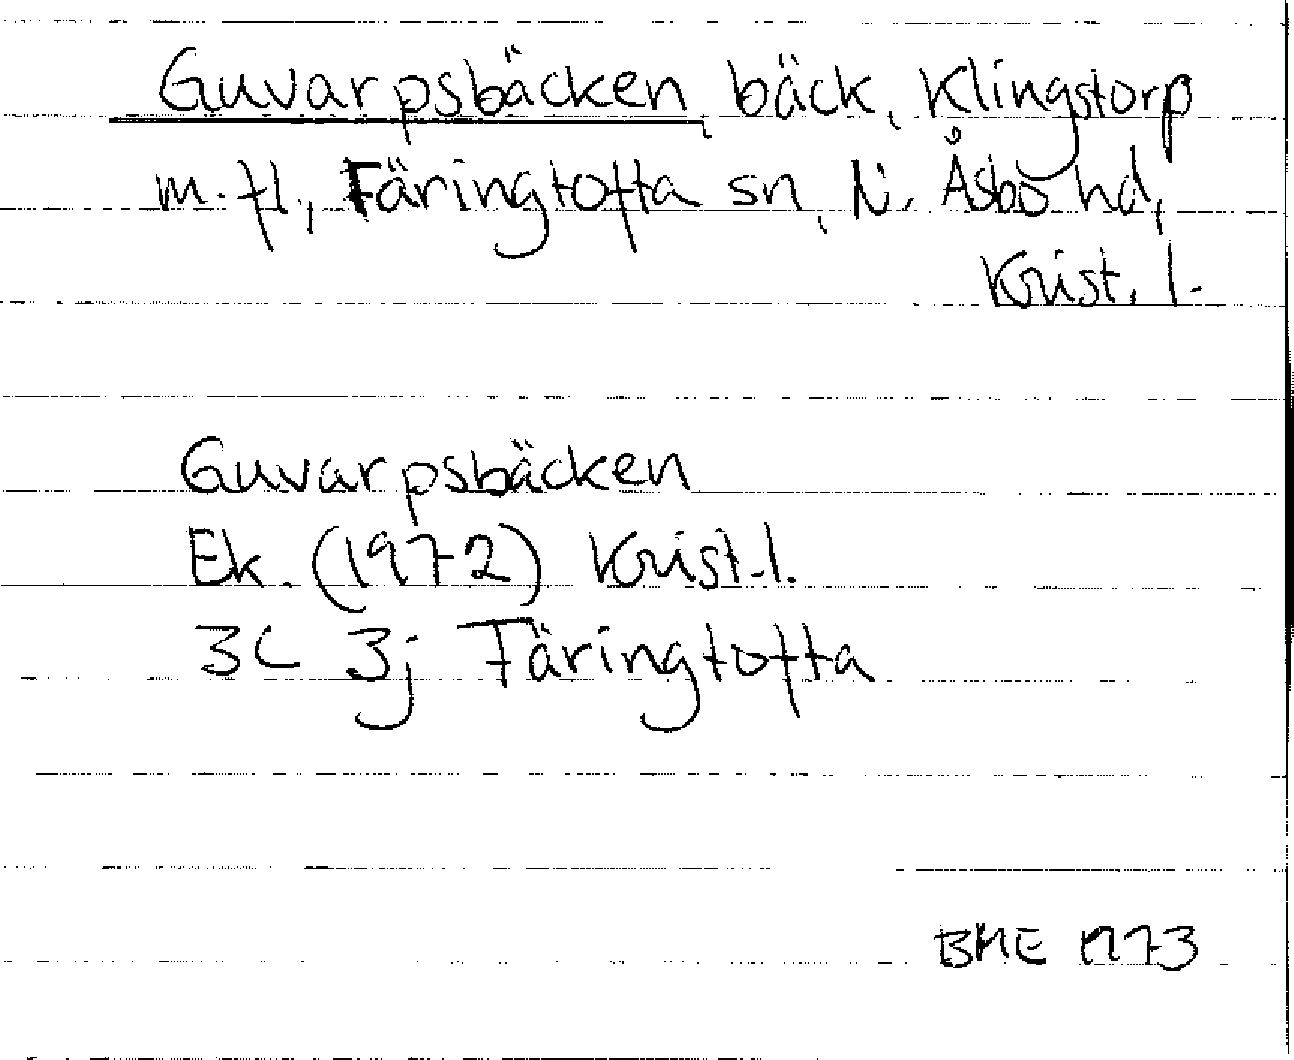 Guvarpsbäcken, bäck, Klingstorp
m.fl., Färingtofta sn, N. Åsbo hd,
Krist. l.
Guvarpsbäcken
Ek. (1972) Krist.l.
3C 3j Färingtofta
BME 1973